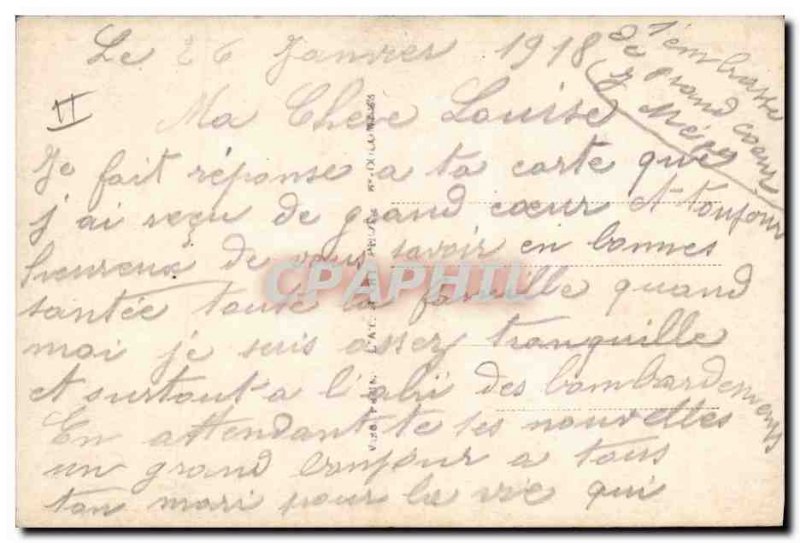 Le 26 Janvier 1918
II
Ma Chere Louise
Je fait réponse a ta carte que
j'ai reçu de grand cœur et toujour
heureux de vous savoir en bonnes
santée toute la famille quand
moi je suis assez tranquille
et surtout a l'abri des bombardements
En attendant te ses nouvelles
un grand bonjour a tous
ton mari pour la vie qui
t'embrasse
de grand coeur
CPAPHIL